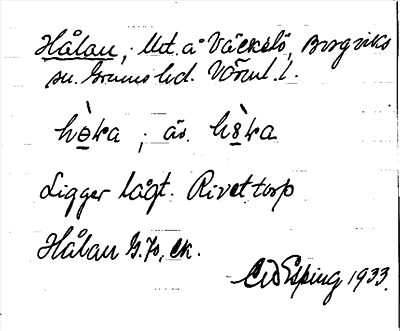 Hålan, Utt. å Väckelö, Borgviks
sn. Grums hd. Värml. l.
hò̱ka ; äv. hò̱ka
Ligger lågt. Rivet torp
Hålan G.70, ek.
Esping 1933.